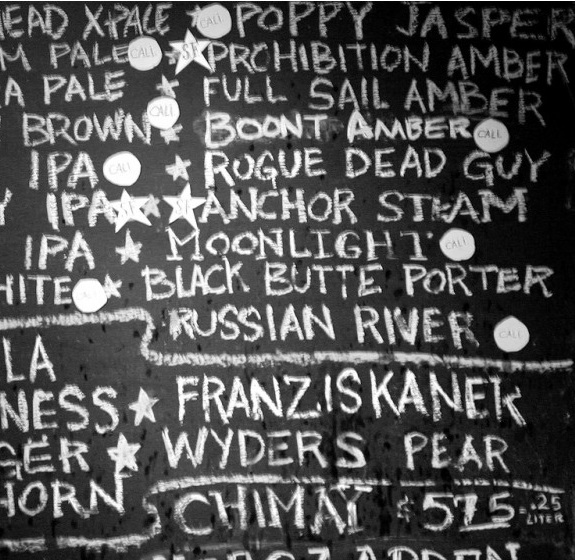 EAD XPALE CALI POPPY JASPER
M PALE CALI SF PROHIBITION AMBER
A PALE FULL SAIL AMBER
BROWN CALI BOONT AMBER CALI
IPA CALI ROGUE DEAD GUY
Y IPA ANCHOR STEAM
IPA MOONLIGHT CALI
HITE CALI BLACK BUTTE PORTER
RUSSIAN RIVER CALI
LA
NESS FRANZISKANER
GER WYDERS PEAR
HORN CHIMAY $575 .25 LITER